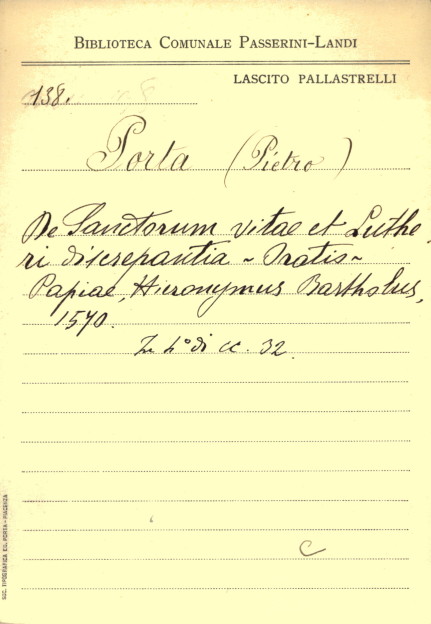 BIBLIOTECA COMUNALE PASSERINI-LANDI
LASCITO PALLASTRELLI
138.
Porta (Pietro)
De Sanctorum vitae et Luthe
ri discrepantia - Oratio -
Papiae, Hieronymus Bartholus,
1570.
In 4° di cc. 32
C
SOC. TIPOGRAFICA ED. PORTA - PIACENZA